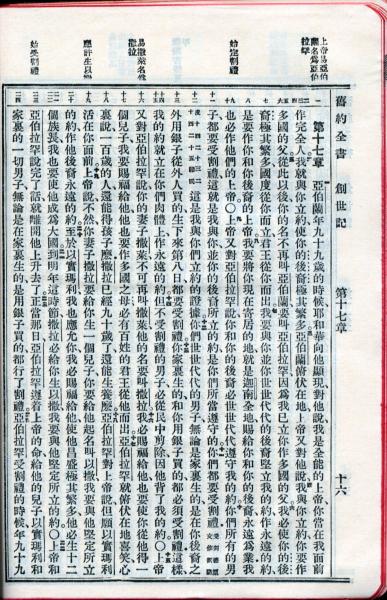 舊約全書 創世記 第十七章 十六
上帝易亞伯
蘭名爲亞伯
拉罕
始定割禮
易撒萊名爲
撒拉
應許生以撒
始受割禮
第十七章 亞伯蘭年九十九歲的時候耶和華向他顯現對他說我是全能的上帝你當在我面前
作完全人我就與你立約使你的後裔極其繁多亞伯蘭俯伏在地上帝又對他說我與你立約你要作
多國的父從此以後你的名不再叫亞伯蘭要叫亞伯拉罕因爲我已立你作多國的父我必使你的後
裔極其繁多國度從你而立君王從你而出我要與你並你世世代代的後裔堅立我的約作永遠的約
是要作你和你後裔的上帝我要將你現在寄居的地就是迦南全地賜給你和你的後裔永遠爲業我
也必作他們的上帝〇上帝又對亞伯拉罕說你和你的後裔必世世代代遵守我的約你們所有的男
子都要受割禮這就是我與你並你的後裔所立的約是你們所當遵守的你們都要受割禮
這是我與你們立約的證據你們世世代代的男子無論是家裏生的是在你後裔之
外用銀子從外人買的生下來第八日都要受割禮你家裏生的和你用銀子買的都必須受割禮這樣
我的約就立在你們肉體上作永遠的約但不受割禮的男子必從民中剪除因他背了我的約〇上帝
又對亞伯拉罕說你的妻子撒萊不可再叫撒萊他的名要叫撒拉我必賜福給他也要使你從他得一
個兒子我要賜福給他他也要作多國之母必有百姓的君王從他而出亞伯拉罕就俯伏在地喜笑心
裏說一百歲的人還能得孩子麽撒拉已經九十歲了還能生養麽亞伯拉罕對上帝說但願以實瑪利
活在你面前上帝說不然你妻子撒拉要給你生一個兒子你要給他起名叫以撒我要與他堅定所立
的約作他後裔永遠的約至於以實瑪利我也應允你我必賜福給他使他昌盛極其繁多他必生十二
個族長我也要使他成爲大國到明年這時節撒拉必給你生以撒我要與他堅定所立的約〇上帝和
亞伯拉罕說完了話就離開他上升去了正當那日亞伯拉罕遵着上帝的命給他的兒子以實瑪利和
家裏的一切男子無論是在家裏生的是用銀子買的都行了割禮亞伯拉罕受割禮的時候年九十九